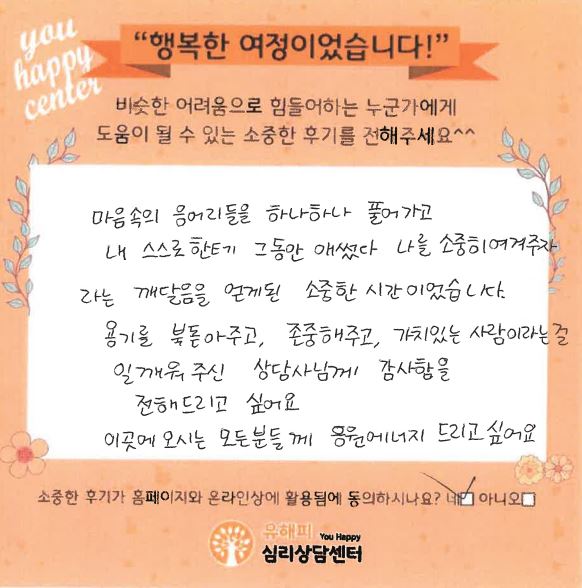 you
happy
center
“행복한 여정이었습니다!”
비슷한 어려움으로 힘들어하는 누군가에게
도움이 될 수 있는 소중한 후기를 전해주세요^^
마음속의 응어리들을 하나하나 풀어가고
내 스스로한테 그동안 애썼다 나를 소중히여겨주자
라는 깨달음을 얻게된 소중한 시간이었습니다.
용기를 북돋아주고, 존중해주고, 가치있는 사람이라는걸
일깨워 주신 상담사님께 감사함을
전해드리고 싶어요
이곳에 오시는 모든분들께 응원에너지 드리고싶어요
소중한 후기가 홈페이지와 온라인상에 활용됨에 동의하시나요? 네 아니오
유해피 You Happy
심리상담센터